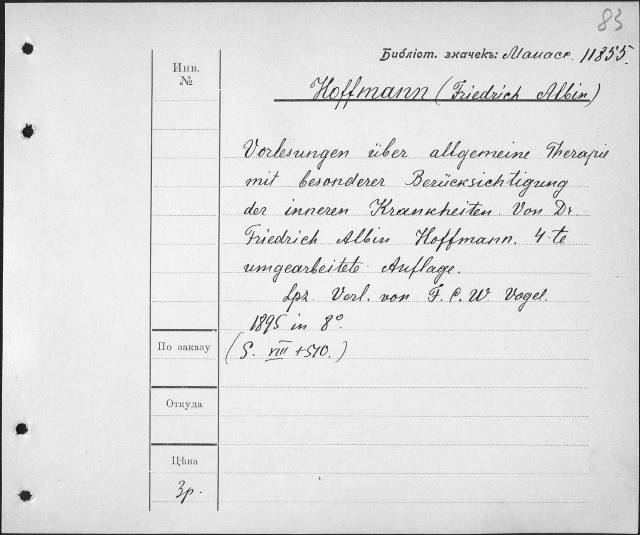 83
Библіот. значекъ: Манасс. 11855.
Инв.
№
Hoffmann (Friedrich Albin)
Vorlesungen über allgemeine Therapie
mit besonderer Berücksichtigung
der inneren Krankheiten. Von Dr.
Friedrich Albin Hoffmann. 4-te
umgearbeitete Auflage.
Lpz. Verl. von F. C. W Vogel.
1895 in 8°.
(S. VIII + 510.)
По заказу
Откуда
Цѣна
3р.